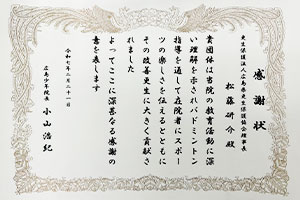 感謝状
更生保護法人広島県更生保護協会理事長
松藤研介殿
貴団体は当院の教育活動に深
い理解を示されバドミントン
指導を通して在院者にスポー
ツの楽しさを伝えるとともに
その改善更生に大きく貢献さ
れました
よってここに深甚なる感謝の
意を表します
令和七年二月二十一日
広島少年院長 小山浩紀